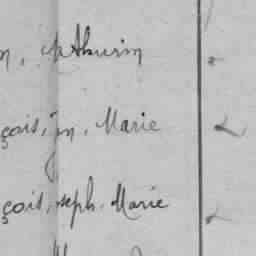 n, Mathurin
çois, Jn, Marie
çois, Joseph. Marie